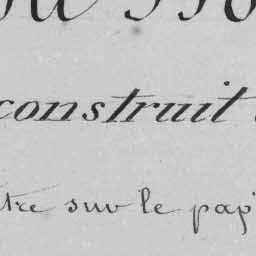 construit
tre sur le pap